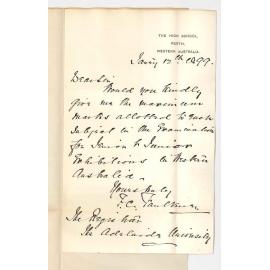 THE HIGH SCHOOL,
PERTH,
WESTERN AUSTRALIA.
Jany 12th 1899.
Dear Sir
Would you kindly
give me the maximum
marks allotted to each
Subject in the Examination
for Senior & Junior
Exhibitions in Western
Australia.
Yours truly
F. C. Faulkner
The Registrar
The Adelaide University